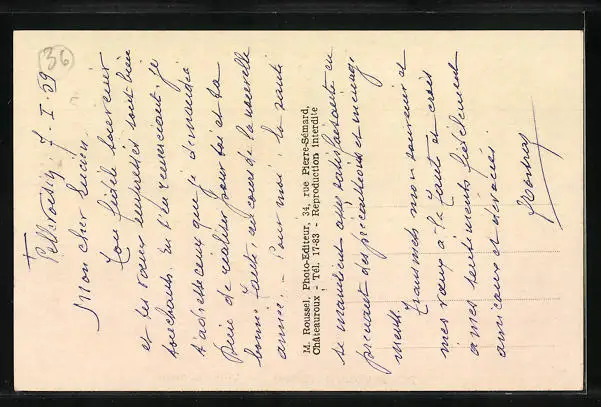 36
7-I-59
Mon cher Lucien
Ton fidèle souvenir
et tes vœux m'ont été bien
touchants. En t'en remerciant, je
t'adresse ceux que je demande à
Dieu de réaliser pour toi et ta
bonne Tante, au cours de la nouvelle
année. - Pour moi, la santé
M. Roussel, Photo-Editeur, 34, rue Pierre-Sémard,
Châteauroux - Tél. 17-83 - Reproduction interdite
se maintient assez satisfaisante en
prenant des précautions et ménage-
ments.
Transmets mon souvenir et
mes vœux à ta Tante et crois
à mes sentiments fidèlement
amicaux et dévoués.